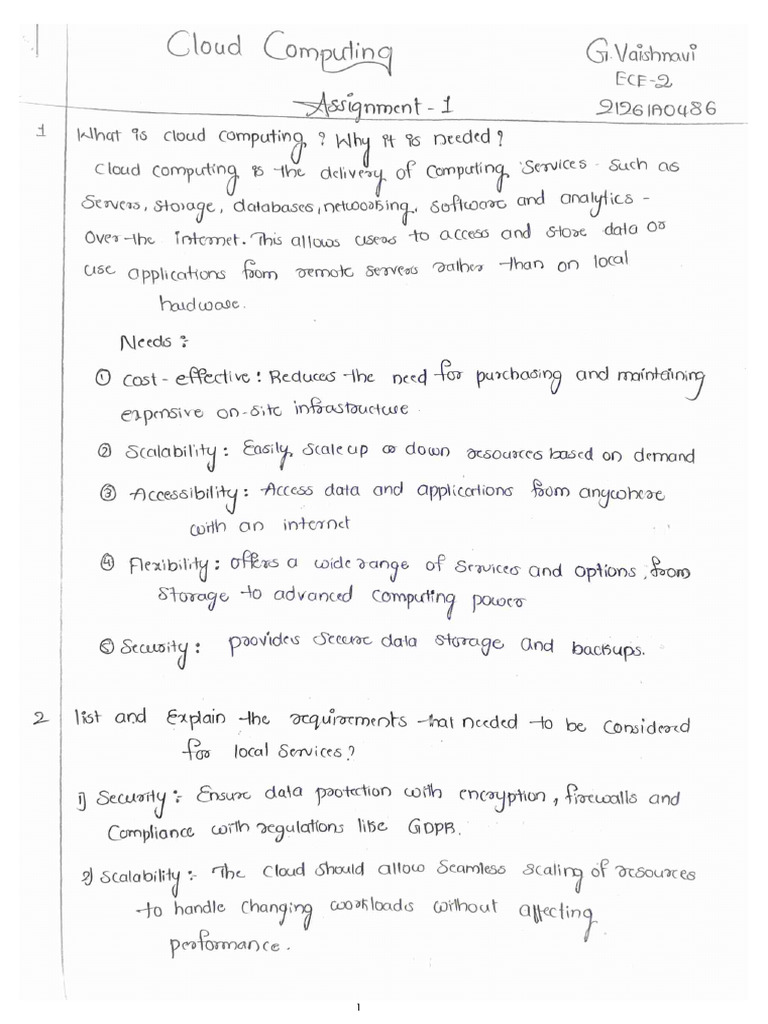 Cloud Computing
G.Vaishnavi
ECE-2
Assignment - 1
21261A0486
1 What is cloud computing? Why it is needed?
Cloud computing is the delivery of computing services - such as
servers, storage, databases, networking, software and analytics -
over the internet. This allows users to access and store data or
use applications from remote servers rather than on local
hardware.
Needs :
① Cost - effective : Reduces the need for purchasing and maintaining
expensive on-site infrastructure.
② Scalability : Easily, scale up or down resources based on demand
③ Accessibility : Access data and applications from anywhere
with an internet
④ Flexibility : offers a wide range of services and options, from
storage to advanced computing power
⑤ Security : provides secure data storage and backups.
2 list and Explain the requirements that needed to be considered
for local services?
1) Security :- Ensure data protection with encryption, firewalls and
Compliance with regulations like GDPR.
2) Scalability :- The cloud should allow seamless scaling of resources
to handle changing workloads without affecting
performance.
1